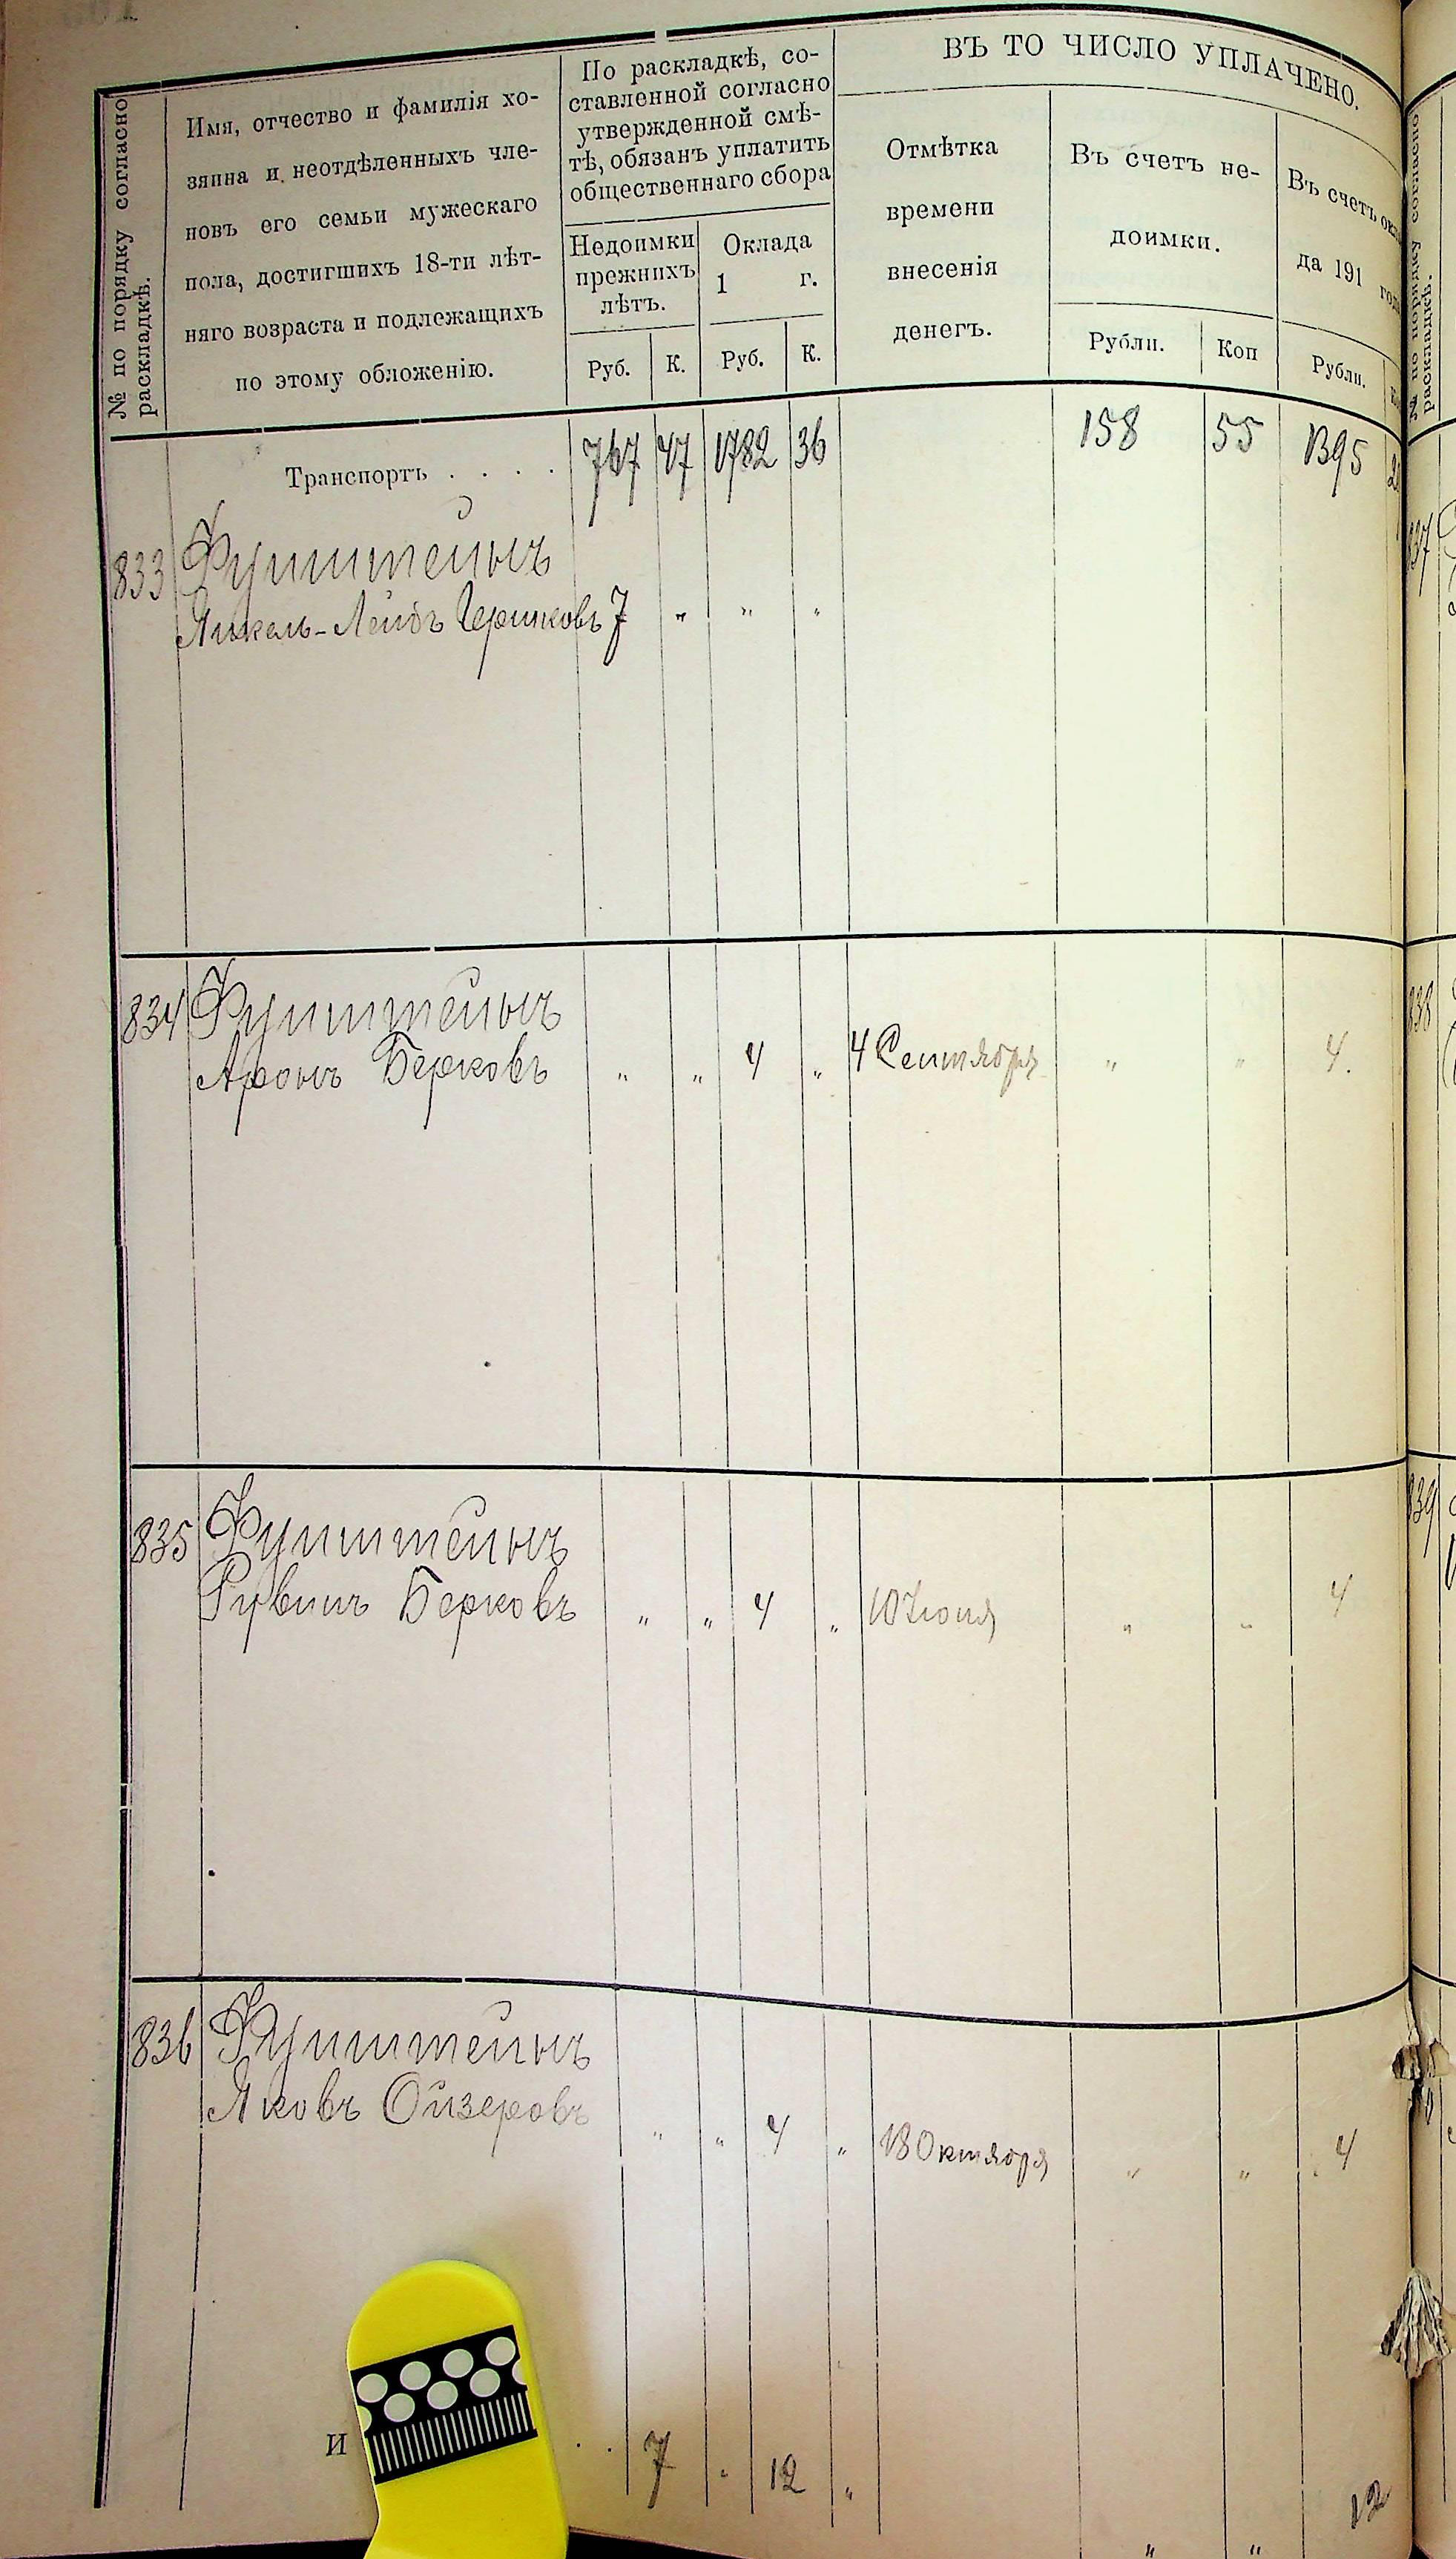 № по порядку согласно
раскладкѣ.
Имя, отчество и фамилія хо-
зяина и неотдѣленныхъ чле-
новъ его семьи мужескаго
пола, достигшихъ 18-ти лѣт-
няго возраста и подлежащихъ
по этому обложенію.
По раскладкѣ, со-
ставленной согласно
утвержденной смѣ-
тѣ, обязанъ уплатить
общественнаго сбора
Недоимки
прежнихъ
лѣтъ.
Оклада
1 г.
Руб. К. Руб. К.
ВЪ ТО ЧИСЛО УПЛАЧЕНО.
Отмѣтка
времени
внесенія
денегъ.
Въ счетъ не-
доимки.
Рубли. Коп
Въ счетъ окла
да 191 года
Рубли.
Транспортъ . . . . 767 47 1782 36 158 55 1395
833 Фунштейнъ
Янкель-Лейбъ Гершковъ 7 „ „ „
834 Фунштейнъ
Аронъ Берковъ „ „ 4 „ 4 Сентября „ „ 4.
835 Фунштейнъ
Рувинъ Берковъ „ „ 4 „ 10 Іюня „ „ 4
836 Фунштейнъ
Яковъ Ойзеровъ „ „ 4 „ 18 Октября „ „ 4
И . . 7 „ 12 „ „ „ 12
№ по порядку согласно
раскладкѣ.
837
838
839